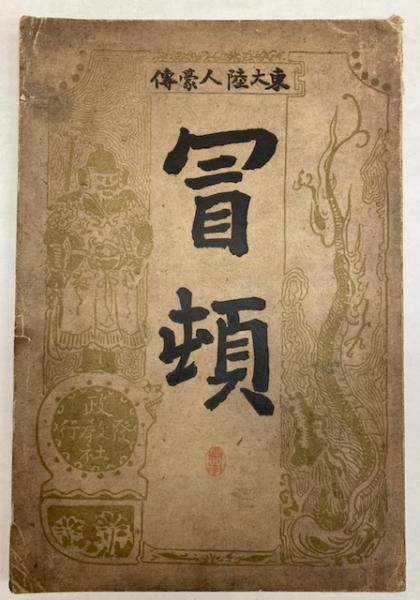 東大陸人豪傳
冒頓
政教社
發行